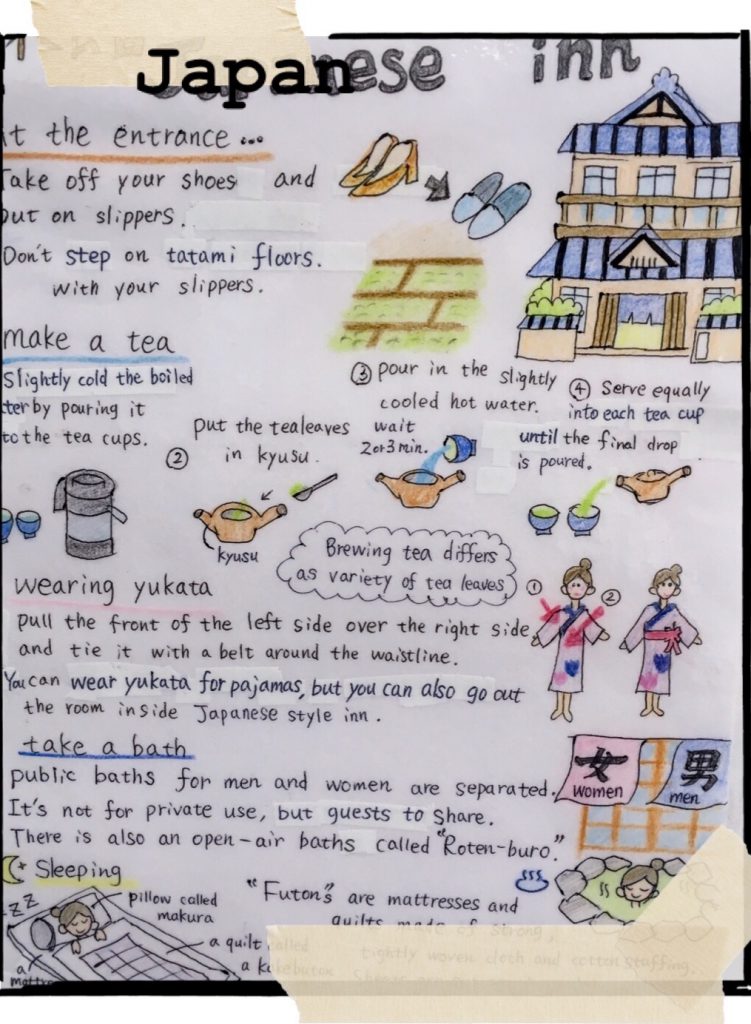 Japan
inn
the entrance...
Take off your shoes and
put on slippers.
Don't step on tatami floors.
with your slippers.
make a tea
Slightly cold the boiled
by pouring it
to the tea cups.
② put the tealeaves
in kyusu.
kyusu
③ pour in the slightly
cooled hot water.
wait
2or3min.
④ Serve equally
into each tea cup
until the final drop
is poured.
Brewing tea differs
as variety of tea leaves
wearing yukata
pull the front of the left side over the right side
and tie it with a belt around the waistline.
You can wear yukata for pajamas, but you can also go out
the room inside Japanese style inn.
① ②
take a bath
public baths for men and women are separated.
It's not for private use, but guests to share.
There is also an open-air baths called "Roten-buro."
女 男
women men
Sleeping
zzz
pillow called
makura
a quilt called
a
"Futon"s are mattresses and
quilts made of strong,
tightly woven cloth and cotton staffing.